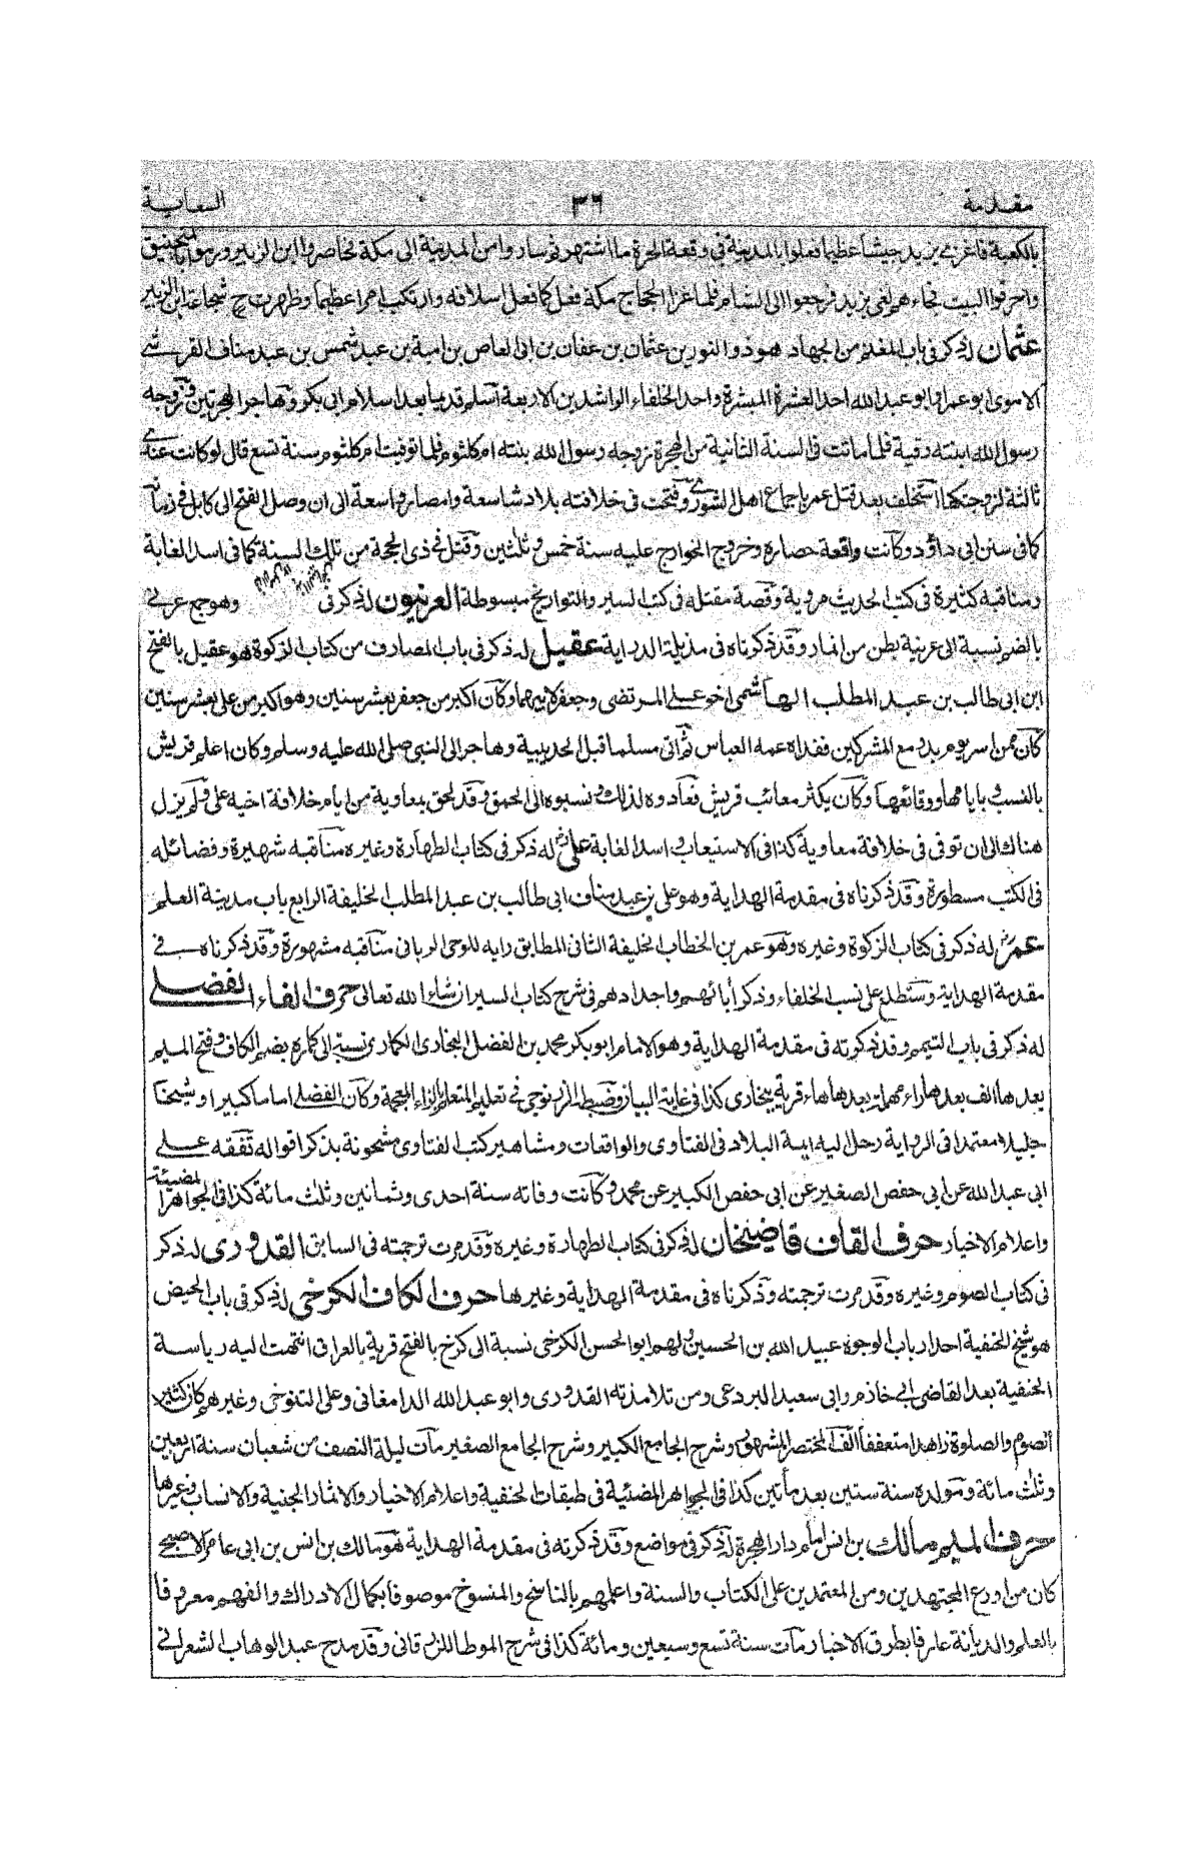 مقدمة ٣٦ السعاية
بالكعبة فاغزى يزيد جيشا عظيما فعلوا بالمدينة فى وقعة الحرة ما اشتهر ثم ساروا من المدينة الى مكة فحاصروا ابن الزبير ورموا بالمنجنيق
واحرقوا البيت فجاءهم نعى يزيد فرجعوا الى الشام فلما غزا الحجاج مكة فعل كما فعل اسلافه وارتكب امرا عظيما وظهرت ح شجاعة ابن الزبير
عثمان له ذكر فى باب المغنم من الجهاد هو ذو النورين عثمان بن عفان بن ابى العاص بن امية بن عبد شمس بن عبد مناف القرشى
الاموى ابو عمر او ابو عبد الله احد العشرة المبشرة واحد الخلفاء الراشدين الاربعة اسلم قديما بعد اسلام ابى بكر وهاجر الهجرتين وتزوجه
رسول الله ابنته رقية فلما ماتت فى السنة الثانية من الهجرة تزوجه رسول الله بنته ام كلثوم فلما توفيت ام كلثوم سنة تسع قال لو كانت عندى
ثالثة لزوجتكها استخلف بعد قتل عمر باجماع اهل الشورى وفتحت فى خلافته بلاد شاسعة وامصار واسعة الى ان وصل الفتح الى كابل فى زمانه
كما فى سنن ابى داؤد وكانت واقعة حصاره وخروج الخوارج عليه سنة خمس وثلثين وقتل فى ذى الحجة من تلك السنة كما فى اسد الغابة
ومناقبه كثيرة فى كتب الحديث مروية وقصة مقتله فى كتب السير والتواريخ مبسوطة العرنيون له ذكر فى وهو جمع عرنى
بالضم نسبة الى عرنية بطن من انمار وقد ذكرناه فى مذيلة الدراية عقيل له ذكر فى باب المصارف من كتاب الزكوة هو عقيل بالفتح
ابن ابى طالب بن عبد المطلب الهاشمى اخو على المرتضى وجعفر لابيهما وكان اكبر من جعفر بعشر سنين وهو اكبر من على بعشر سنين
كان ممن اسر يوم بدر مع المشركين ففداه عمه العباس ثم اتى مسلما قبل الحديبية وهاجر الى النبى صلى الله عليه وسلم وكان اعلم قريش
بالنسب وبايامها ووقائعها وكان يكثر معائب قريش فعادوه لذلك ونسبوه الى الحمق وقد لحق بمعاوية من ايام خلافة اخيه على ولم يزل
هناك الى ان توفى فى خلافة معاوية كذا فى الاستيعاب واسد الغابة على له ذكر فى كتاب الطهارة وغيره مناقبه شهيرة وفضائله
فى الكتب مسطورة وقد ذكرناه فى مقدمة الهداية وهو على بن عبد مناف ابى طالب بن عبد المطلب الخليفة الرابع باب مدينة العلم
عمر له ذكر فى كتاب الزكوة وغيره وهو عمر بن الخطاب الخليفة الثانى المطابق رايه للوحى الربانى مناقبه مشهورة وقد ذكرناه فى
مقدمة الهداية وستطلع على نسب الخلفاء وذكر أبائهم واجدادهم فى شرح كتاب السير ان شاء الله تعالى حرف الفاء الفضلى
له ذكر فى باب التيمم وقد ذكرته فى مقدمة الهداية وهو الامام ابو بكر محمد بن الفضل البخارى الكمارى نسبة الى كماره بضم الكاف وفتح الميم
بعدها الف بعدها راء مهملة بعدها هاء قرية ببخارى كذا فى غاية البيان وضبط الزرنوجى فى تعليم المتعلم بالزاء المعجمة وكان الفضلى اماما كبيرا وشيخا
جليلا معتمدا فى الرواية رحل اليه ايمة البلاد فى الفتاوى والواقعات ومشاهير كتب الفتاوى مشحونة بذكر اقواله تفقه على
ابى عبد الله عن ابى حفص الصغير عن ابى حفص الكبير عن محمد وكانت وفاته سنة احدى وثمانين وثلث مائة كذا فى الجواهر المضيئة
واعلام الاخيار حرف القاف قاضيخان له ذكر فى كتاب الطهارة وغيره وقد مرت ترجمته فى السابق القدورى له ذكر
فى كتاب الصوم وغيره وقد مرت ترجمته وذكرناه فى مقدمة الهداية وغيرها حرف الكاف الكرخى له ذكر فى باب الحيض
هو شيخ الحنفية احد ارباب الوجوه عبيد الله بن الحسين ولهم ابو الحسن الكرخى نسبة الى كرخ بالفتح قرية بالعراق انتهت اليه رياسة
الحنفية بعد القاضى ابى خاذم وابى سعيد البردعى ومن تلامذته القدورى وابو عبد الله الدامغانى وعلى التنوخى وغيرهم كان كثير
الصوم والصلوة زاهدا متعففا الف المختصر المشهور وشرح الجامع الكبير وشرح الجامع الصغير مات ليلة النصف من شعبان سنة اربعين
وثلث مائة ومولده سنة ستين بعد مأتين كذا فى الجواهر المضئية فى طبقات الحنفية واعلام الاخيار والاثمار الجنية والانساب وغيرها
حرف الميم مالك بن انس امام دار الهجرة له ذكر فى مواضع وقد ذكرته فى مقدمة الهداية هو مالك بن انس بن ابى عامر الاصبحى
كان من اورع المجتهدين ومن المعتمدين على الكتاب والسنة واعلمهم بالناسخ والمنسوخ موصوفا بكمال الادراك والفهم معروفا
بالعلم والديانة عارفا بطرق الاخبار مات سنة تسع وسبعين ومائة كذا فى شرح الموطا للزرقانى وقد مدح عبد الوهاب الشعرانى